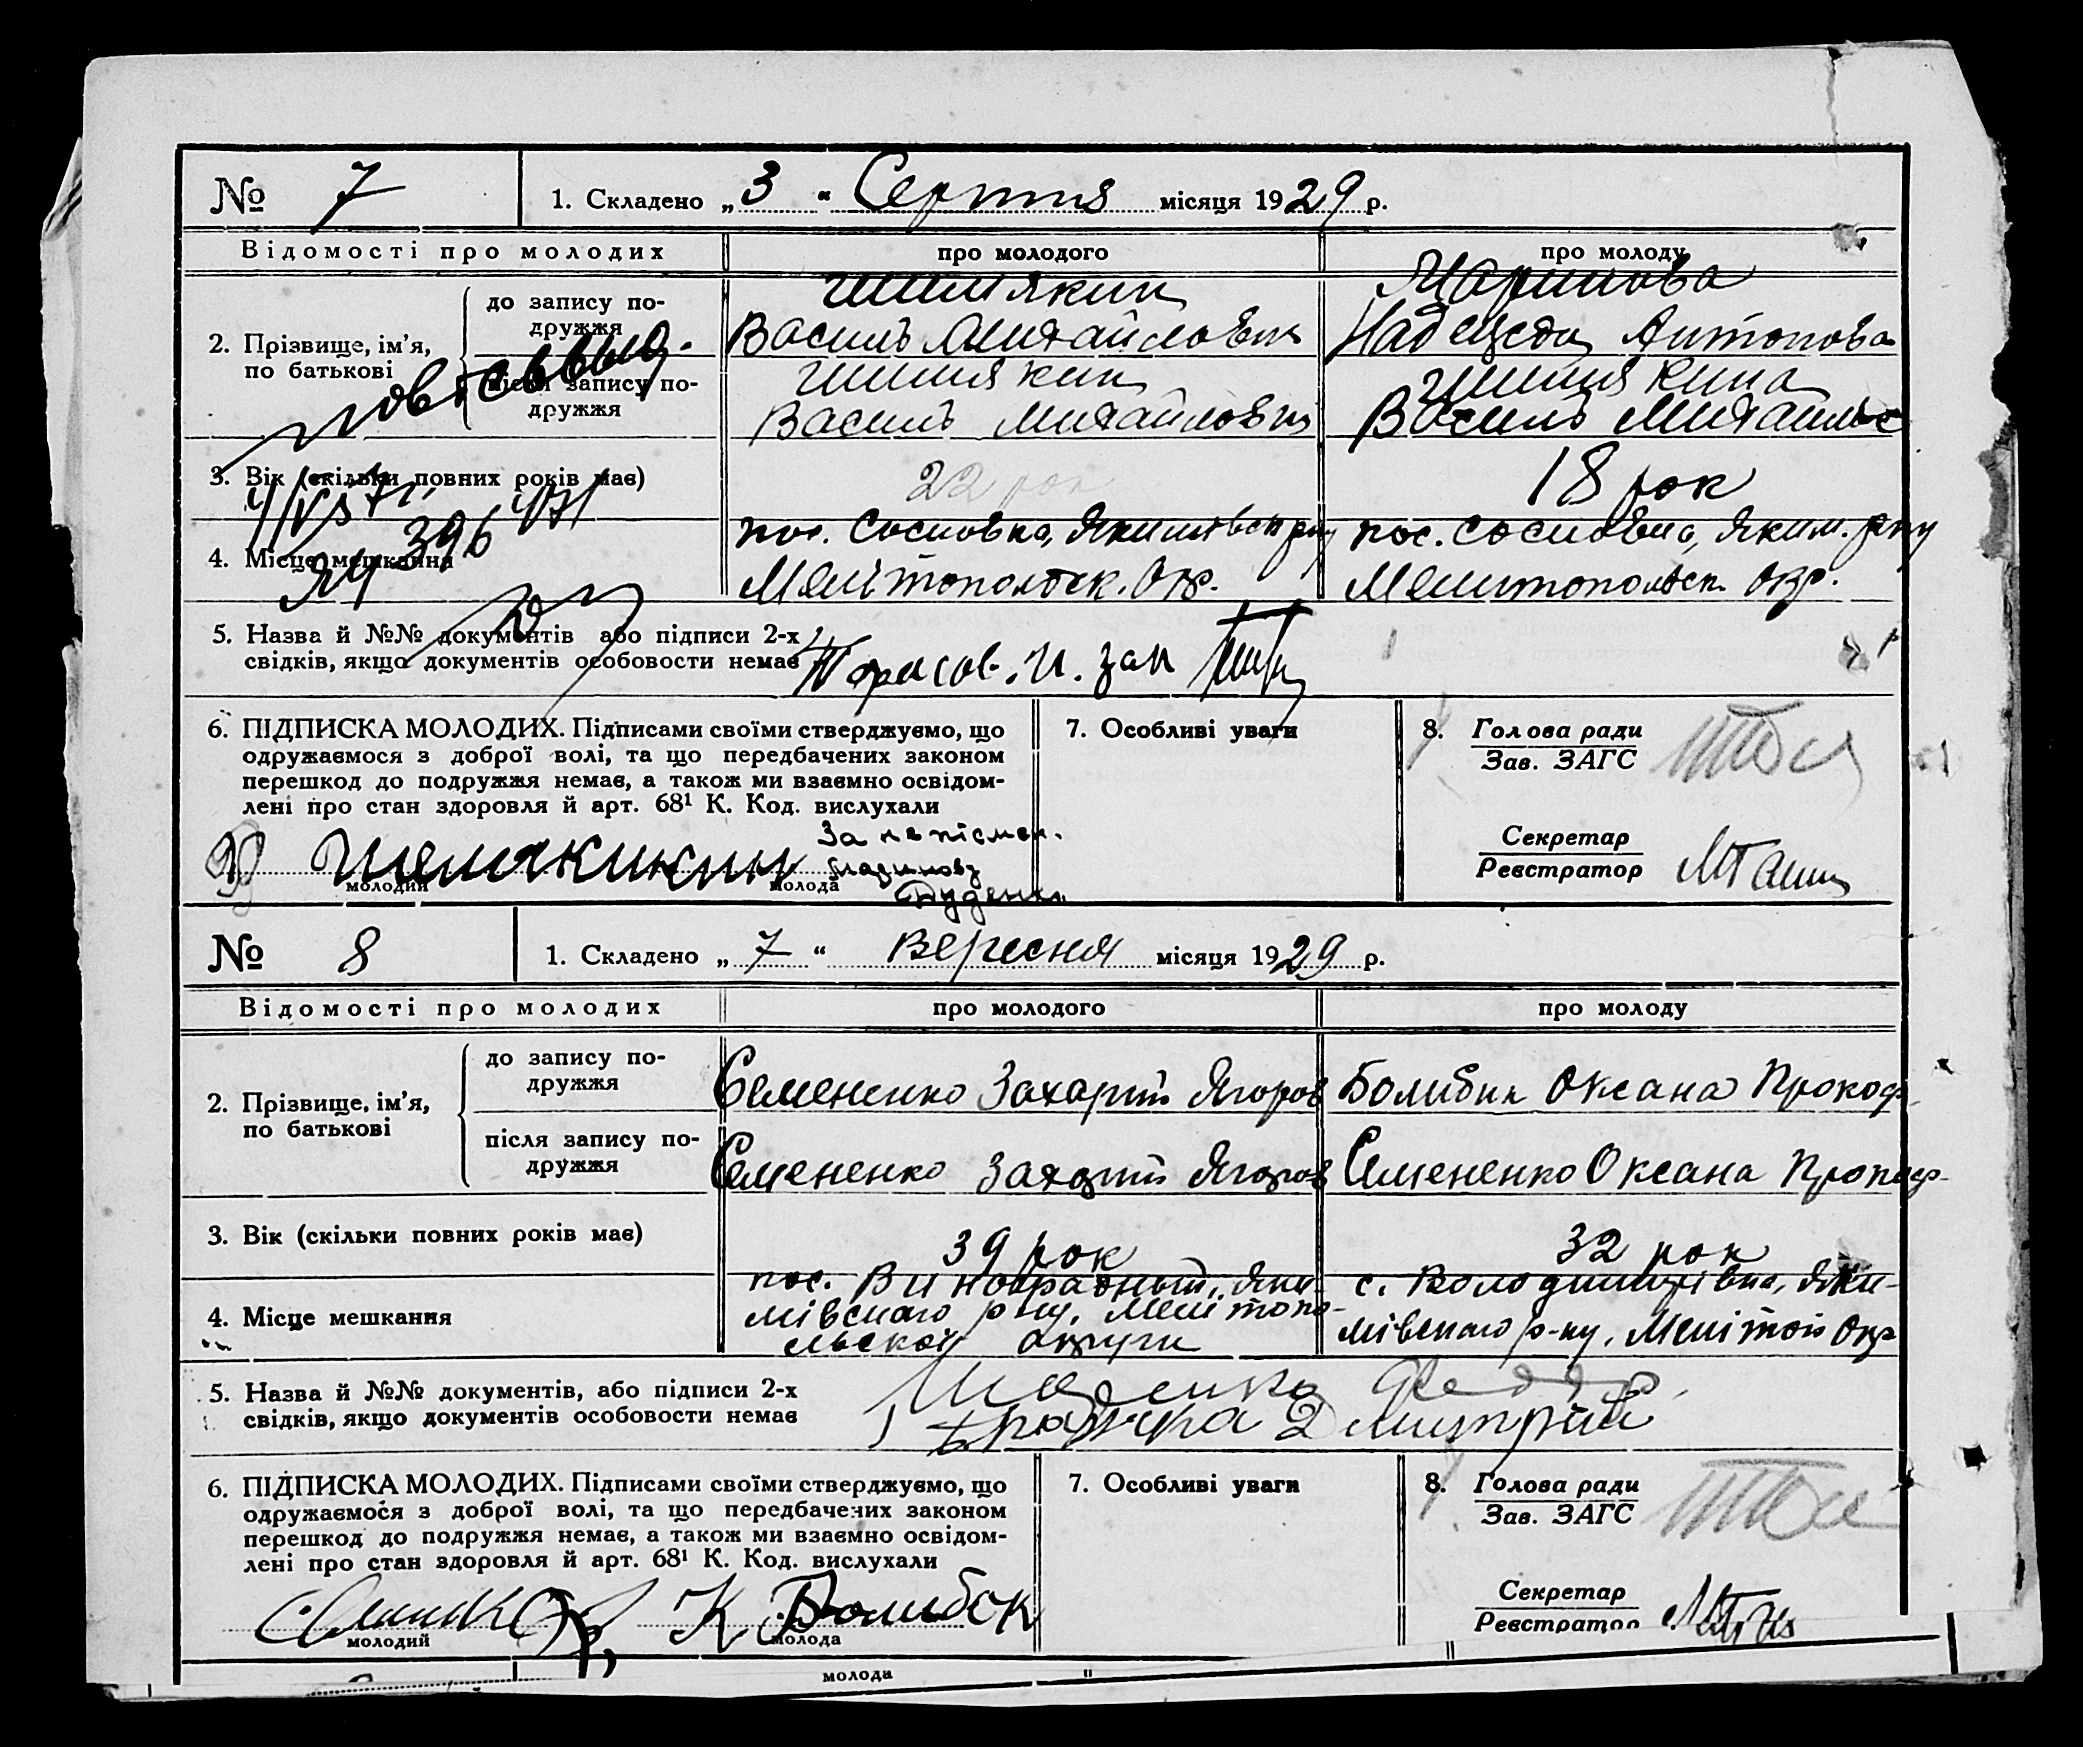 № 7 1. Складено „3“ Серпня місяця 1929 р.
Відомості про молодих про молодого про молоду
2. Прізвище, ім'я, по батькові
до запису подружжя
Шишякин
Василь Михайлович
Надежда Антонова
після запису подружжя
Шишякин
Василь Михайлович
Шишякина
Василь
3. Вік (скільки повних років має) 22 рок 18 рок
4. Місце мешкання
пос. Сосновка, Якимівськ рну
Мелітопольск. Окр.
пос. Сосновка, Яким. рну
Мелитопольск. Окр.
5. Назва й №№ документів або підписи 2-х
свідків, якщо документів особовости немає
6. ПІДПИСКА МОЛОДИХ. Підписами своїми стверджуємо, що
одружаємося з доброї волі, та що передбачених законом
перешкод до подружжя немає, а також ми взаємно освідом-
лені про стан здоровля й арт. 68¹ К. Код. вислухали
За непісмен.
молодий молода
7. Особливі уваги
8. Голова ради
Зав. ЗАГС
Секретар
Реєстратор
№ 8 1. Складено „7“ Вересня місяця 1929 р.
Відомості про молодих про молодого про молоду
2. Прізвище, ім'я, по батькові
до запису подружжя
Семененко Захарий Ягоров
Болибик Оксана Прокоф
після запису подружжя
Семененко Захарий Ягоров
Семененко Оксана Прокоф-
3. Вік (скільки повних років має) 39 рок 32 рок
4. Місце мешкання
пос. Виноградный, Яки-
мівскаго р-ну, Мелітопо-
льской округи
с. Володимирівка, Яки-
мівскаго р-ну, Мелітоп Окр
5. Назва й №№ документів, або підписи 2-х
свідків, якщо документів особовости немає
Дмитрій
6. ПІДПИСКА МОЛОДИХ. Підписами своїми стверджуємо, що
одружаємося з доброї волі, та що передбачених законом
перешкод до подружжя немає, а також ми взаємно освідом-
лені про стан здоровля й арт. 68¹ К. Код. вислухали
молодий молода
7. Особливі уваги
8. Голова ради
Зав. ЗАГС
Секретар
Реєстратор
молода